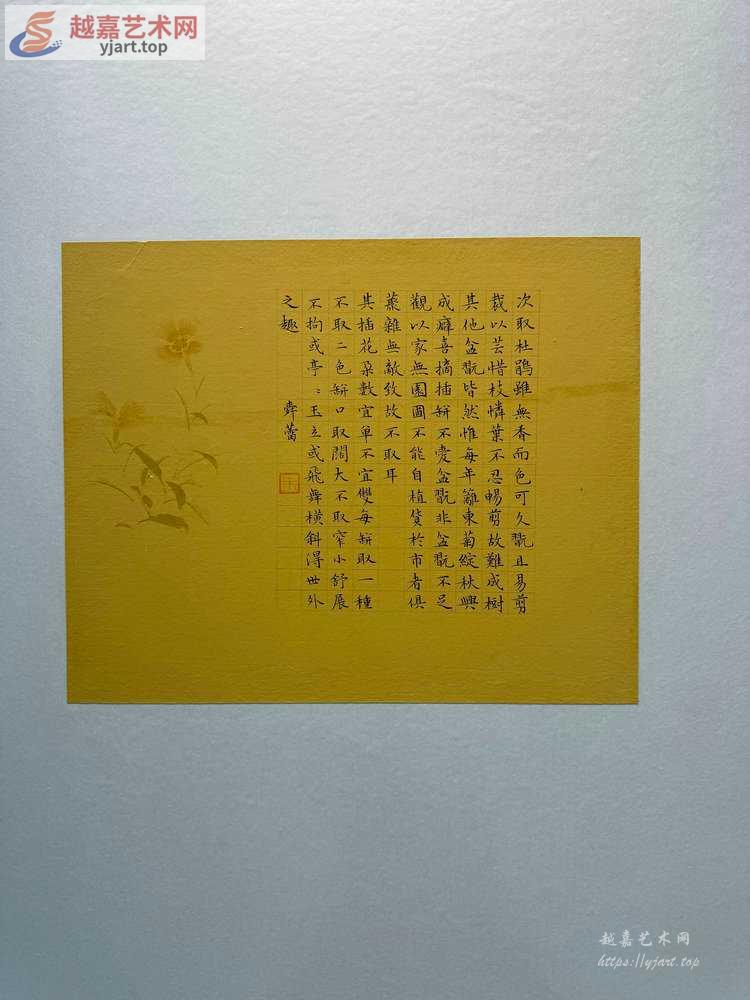 越嘉艺术网
yjart.top
次取杜鵑雖無香而色可久翫且易剪
裁以芸惜枝憐葉不忍暢剪故難成樹
其他盆翫皆然惟每年籬東菊綻秋興
成癖喜摘插缾不愛盆翫非盆翫不足
觀以家無園圃不能自植貨於市者俱
藂雜無敵致故不取耳
其插花朵數宜單不宜雙每缾取一種
不取二色缾口取闊大不取窄小舒展
不拘或亭〻玉立或飛舞橫斜得世外
之趣 蕾
越嘉艺术网
https://yjart.top